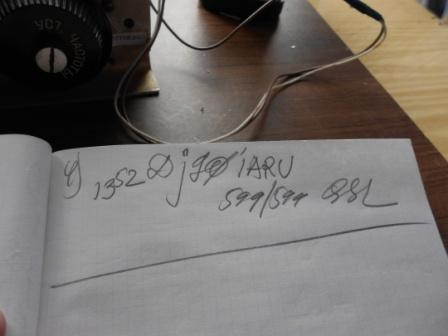 УСТ. ЧАСТОТЫ
9) 1352 DJ9ØIARU
599/599 QSL